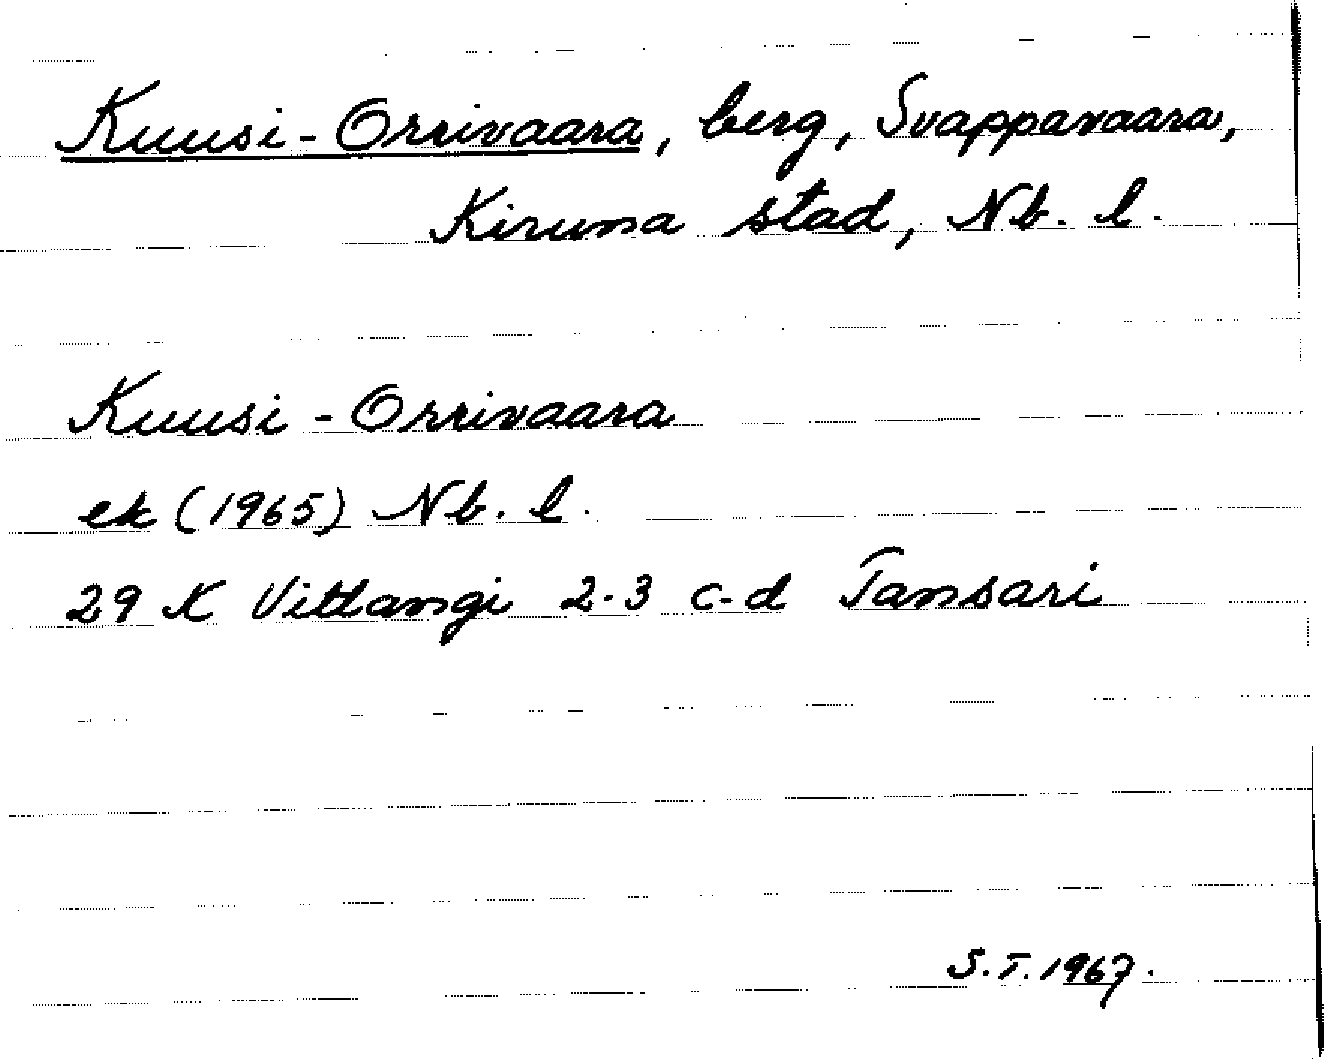 Kuusi-Orrivaara, berg, Svappavaara,
Kiruna stad, Nb. l.
Kuusi-Orrivaara
ek (1965) Nb. l.
29 K Vittangi 2-3 c-d Tansari
S.T. 1967.